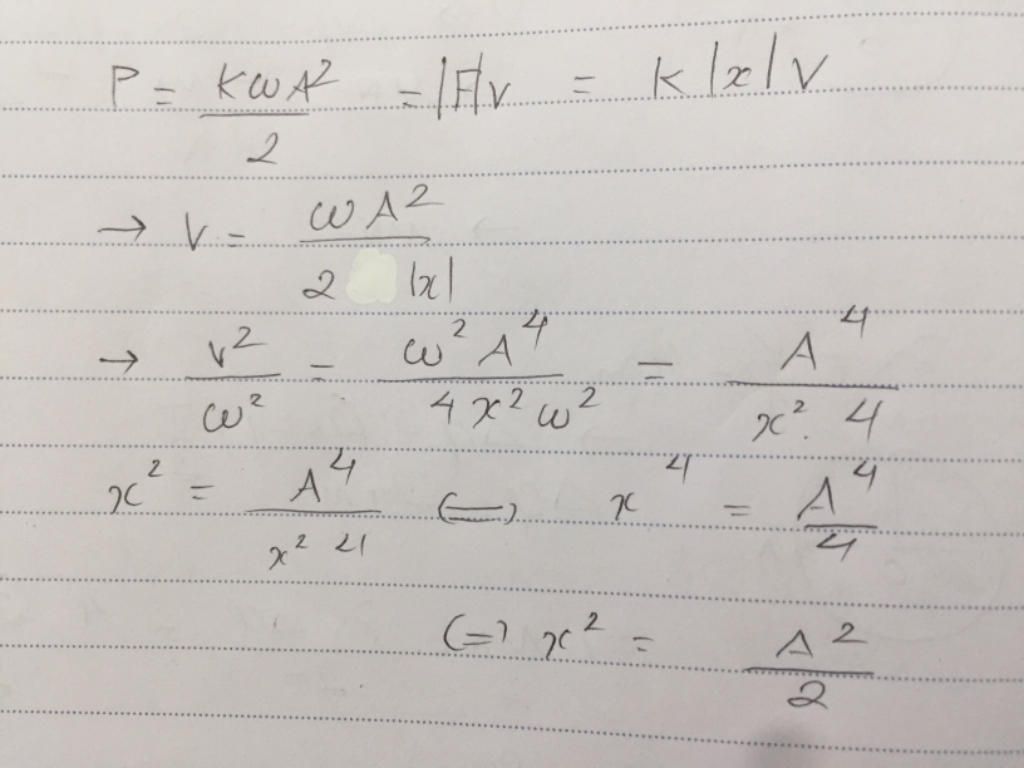 P = KωA²/2 = |F|v = K|x|V
→ V = ωA²/2|x|
→ v²/ω² = ω²A⁴/4x²ω² = A⁴/x².4
x² = A⁴/x²4 (=) x⁴ = A⁴/4
(=) x² = A²/2